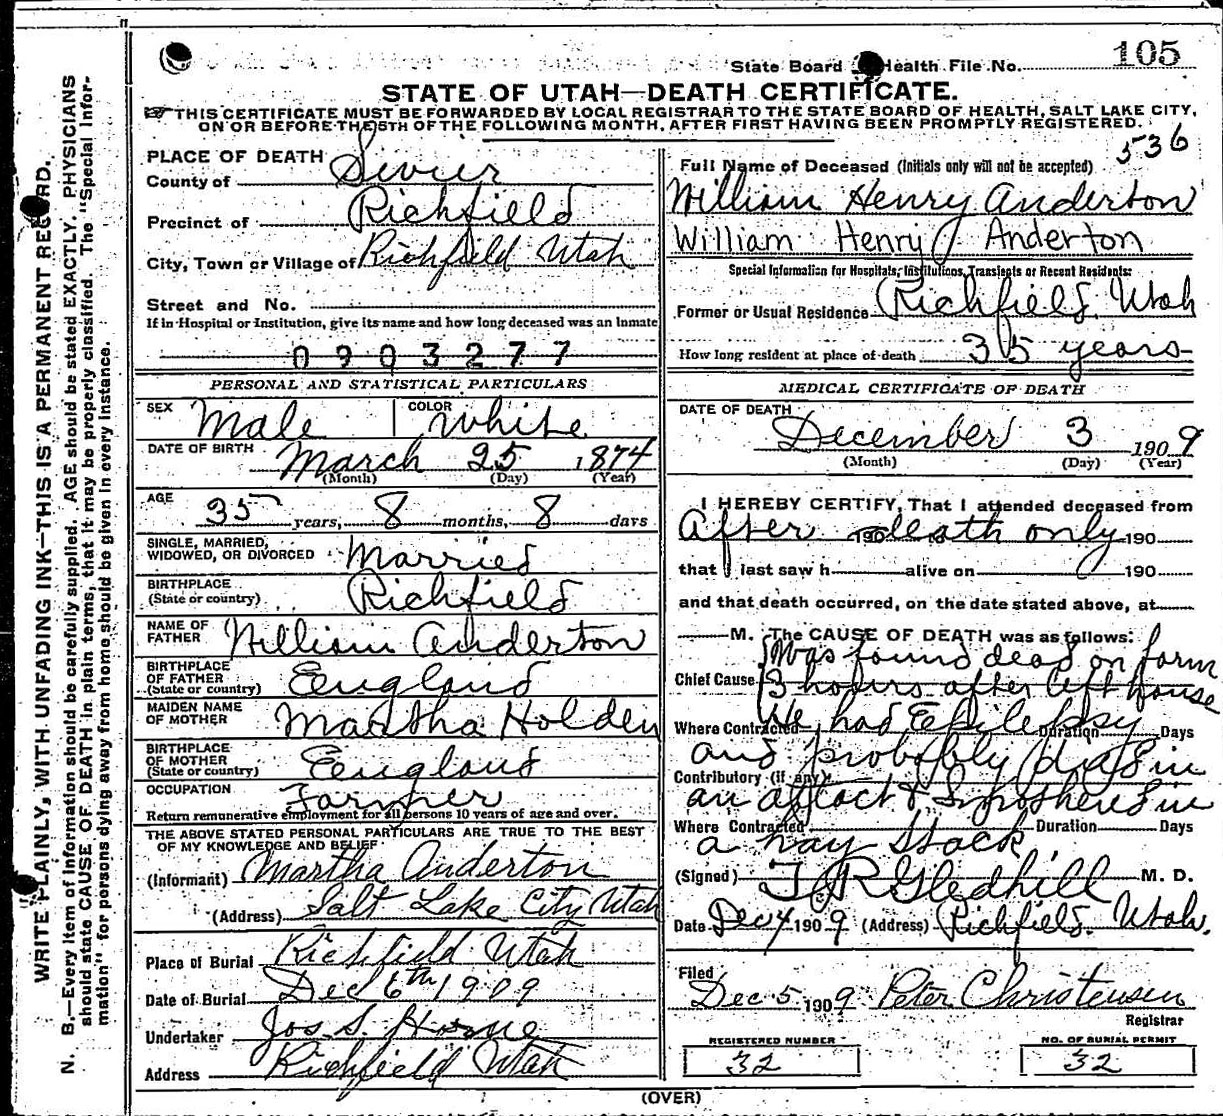 State Board of Health File No. 105
STATE OF UTAH—DEATH CERTIFICATE.
THIS CERTIFICATE MUST BE FORWARDED BY LOCAL REGISTRAR TO THE STATE BOARD OF HEALTH, SALT LAKE CITY,
ON OR BEFORE THE 5TH OF THE FOLLOWING MONTH, AFTER FIRST HAVING BEEN PROMPTLY REGISTERED.
536
WRITE PLAINLY, WITH UNFADING INK—THIS IS A PERMANENT RECORD.
N. B.—Every item of information should be carefully supplied. AGE should be stated EXACTLY. PHYSICIANS
should state CAUSE OF DEATH in plain terms, that it may be properly classified. The "Special Infor-
mation" for persons dying away from home should be given in every instance.
PLACE OF DEATH
County of Sevier
Precinct of Richfield
City, Town or Village of Richfield Utah
Street and No.
If in Hospital or Institution, give its name and how long deceased was an inmate
0903277
PERSONAL AND STATISTICAL PARTICULARS
SEX Male COLOR White
DATE OF BIRTH March 25 1874
(Month) (Day) (Year)
AGE 35 years, 8 months, 8 days
SINGLE, MARRIED,
WIDOWED, OR DIVORCED Married
BIRTHPLACE
(State or country) Richfield
NAME OF
FATHER William Anderton
BIRTHPLACE
OF FATHER
(State or country) England
MAIDEN NAME
OF MOTHER Martha Holden
BIRTHPLACE
OF MOTHER
(State or country) England
OCCUPATION Farmer
Return remunerative employment for all persons 10 years of age and over.
THE ABOVE STATED PERSONAL PARTICULARS ARE TRUE TO THE BEST
OF MY KNOWLEDGE AND BELIEF
(Informant) Martha Anderton
(Address) Salt Lake City Utah
Place of Burial Richfield Utah
Date of Burial Dec 6th 1909
Undertaker Jos S. Horne
Address Richfield Utah
Full Name of Deceased (Initials only will not be accepted)
William Henry Anderton
William Henry Anderton
Special Information for Hospitals, Institutions, Transients or Recent Residents:
Former or Usual Residence Richfield. Utah
How long resident at place of death 35 years
MEDICAL CERTIFICATE OF DEATH
DATE OF DEATH
December 3 1909
(Month) (Day) (Year)
I HEREBY CERTIFY, That I attended deceased from
After death only 190 190
that I last saw h alive on 190
and that death occurred, on the date stated above, at
M. The CAUSE OF DEATH was as follows:
Was found dead on farm
Chief Cause 3 hours after left house
Where Contracted Duration Days
He had Epilepsy
and probably died in
Contributory (if any)
an attact & smothered in
Where Contracted Duration Days
a hay stack
(Signed) T. R. Gledhill M. D.
Date Dec 4 1909 (Address) Richfield. Utah.
Filed
Dec 5 1909 Peter Christensen
Registrar
REGISTERED NUMBER
32
NO. OF BURIAL PERMIT
32
(OVER)